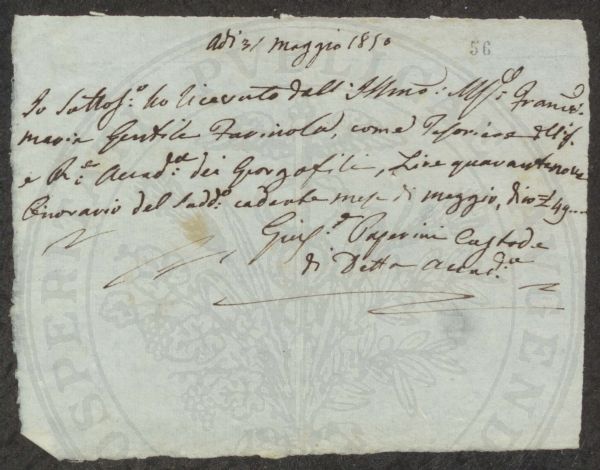 Adi 31 Maggio 1850
56
Io Sottos:o ho ricevuto dall: Illmo: M:se Franco
maria Gentile Farinola, come Tesoriere dell'I.
e R:e Accad:a dei Georgofili, Lire quarantanove
Onorario del Sudd:o cadente mese di Maggio, dico £ 49
Gius:e Paperini Custode
di Detta Accad:a